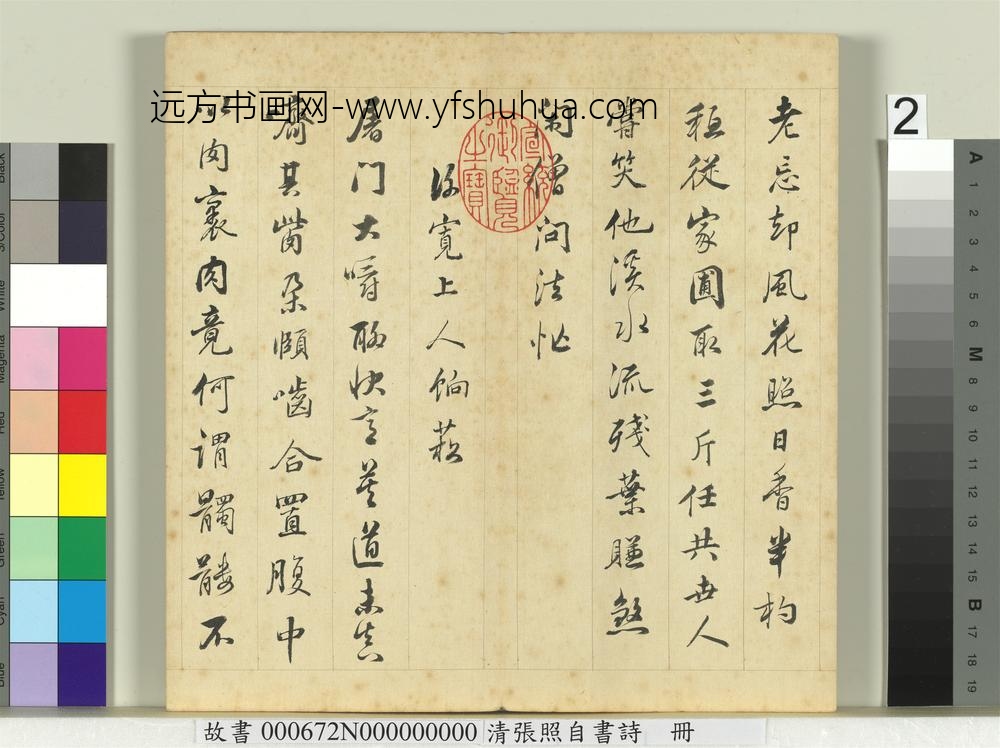 老忘却風花照日香半杓
從家圃取三斤任共世人
嘗笑他溪水流殘葉賺煞
僧问法忙
寬上人餉菘
屠門大嚼聊快意道未
其朵頤嚙合置腹中
肉裹肉竟何謂髑髏不
御覽之寶
远方书画网-www.yfshuhua.com
2
故書 000672N000000000 清張照自書詩 冊
Black
3/Color
White
Magenta
Red
Yellow
Green
Cyan
Blue
A
1
2
3
4
5
6
M
8
9
10
11
12
13
14
15
B
17
18
19